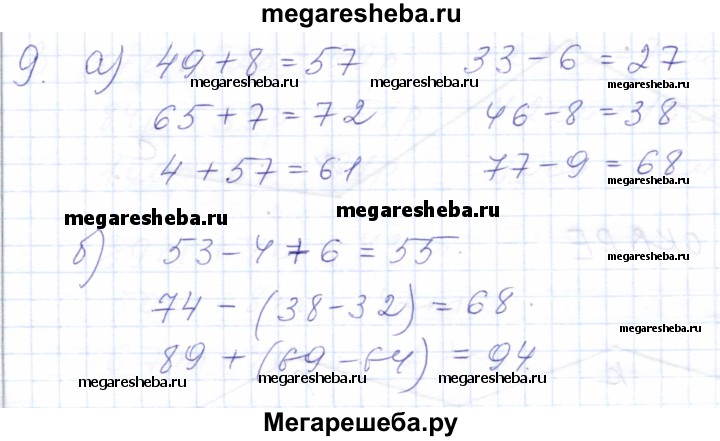 megaresheba.ru
9. а) 49 + 8 = 57 33 - 6 = 27
megaresheba.ru megaresheba.ru megaresheba.ru
65 + 7 = 72 46 - 8 = 38
4 + 57 = 61 77 - 9 = 68
megaresheba.ru megaresheba.ru megaresheba.ru
б) 53 - 4 + 6 = 55
74 - (38 - 32) = 68
89 + (69 - 64) = 94
megaresheba.ru megaresheba.ru megaresheba.ru
Мегарешеба.ру